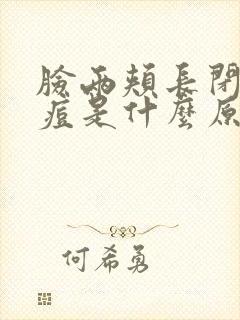 臉兩頰長閉
痘是什麼原
何希勇